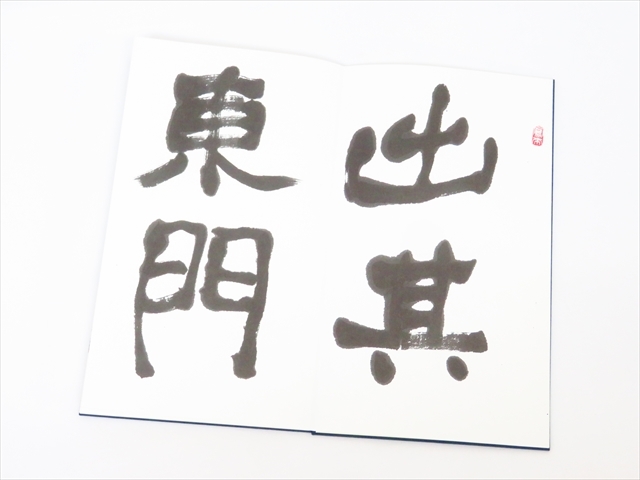 出其
東門